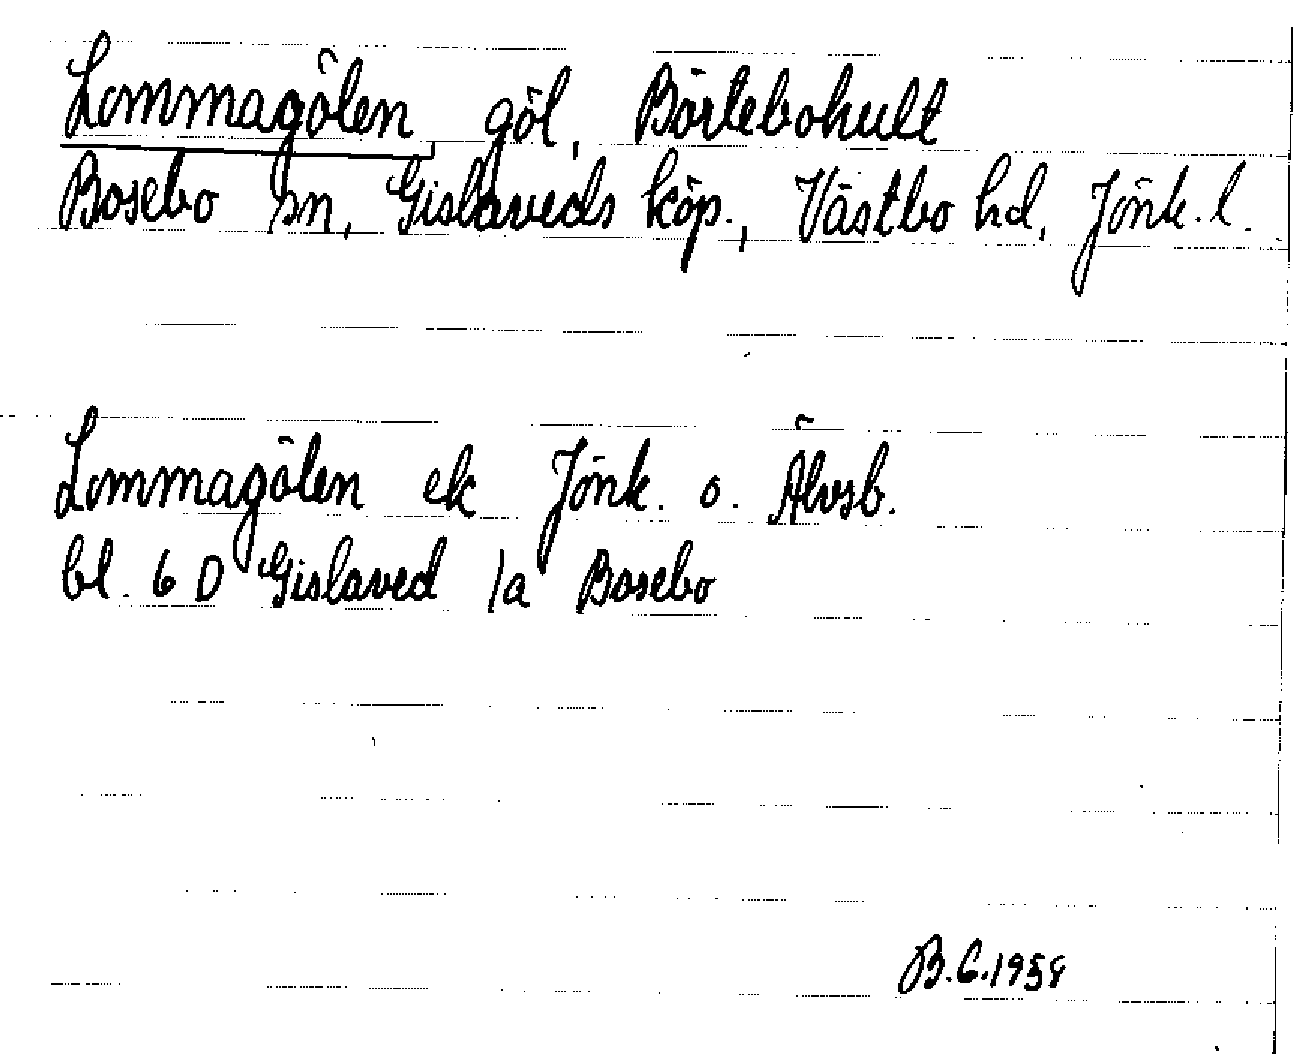 Lommagölen, göl, Börtebohult
Bosebo sn, Gislaveds köp., Västbo hd, Jönk. l.
Lommagölen ek Jönk. o. Älvsb.
bl. 6 D Gislaved 1a Bosebo
B.C.1958